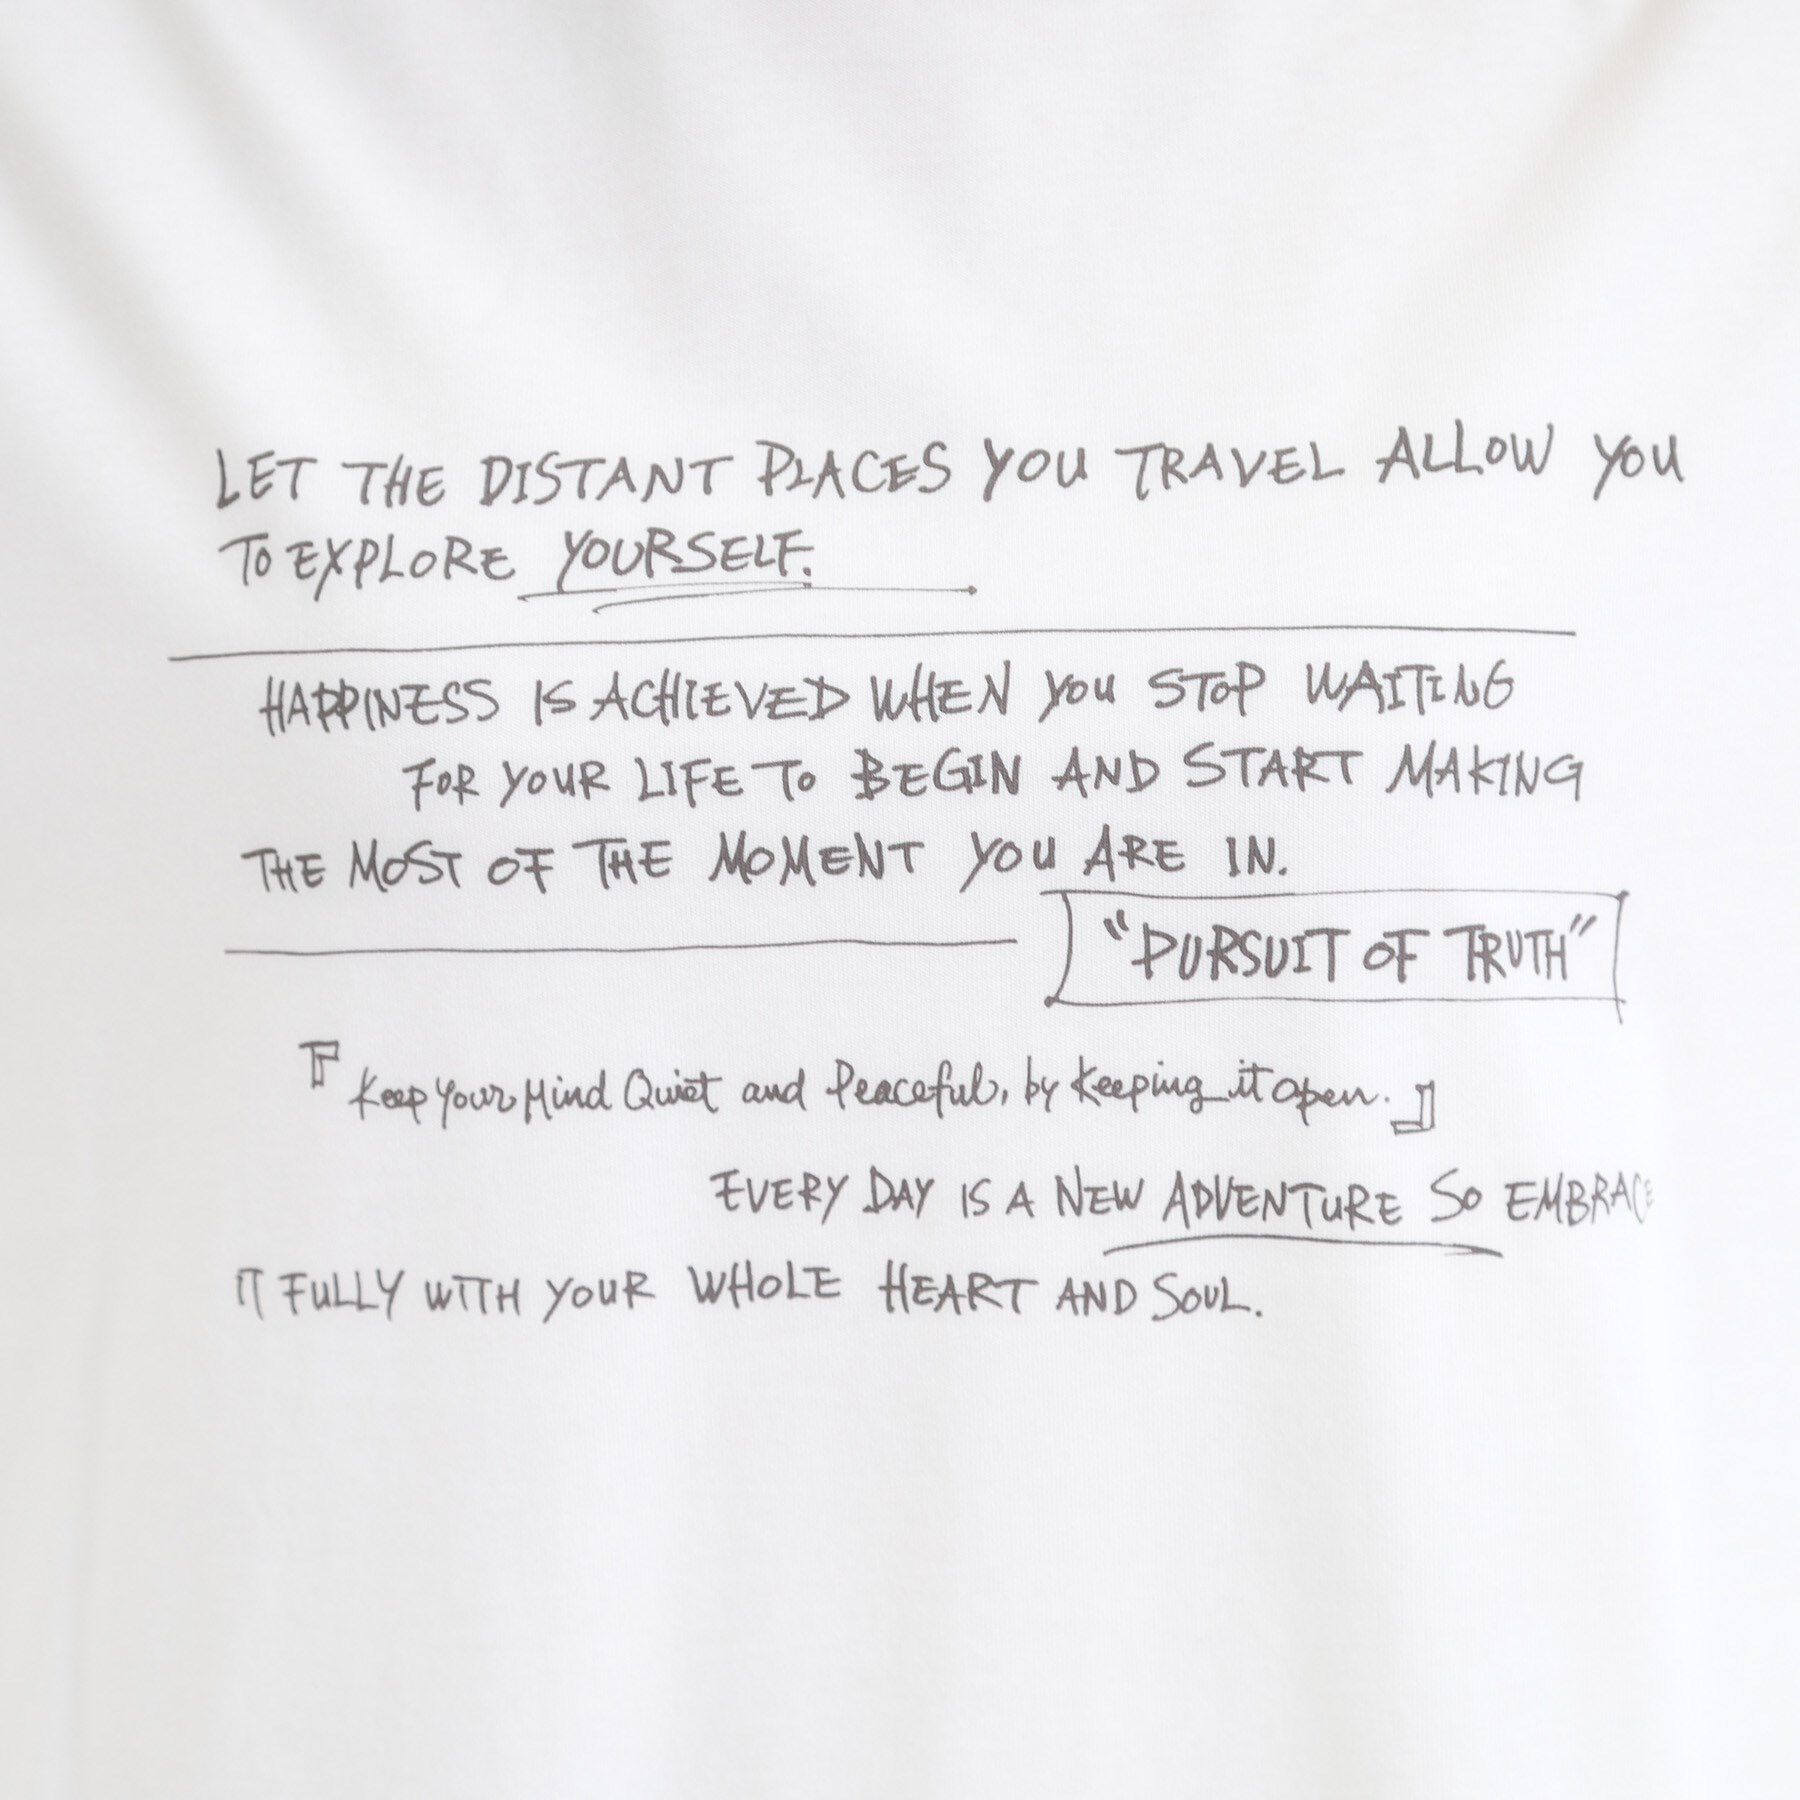 LET THE DISTANT PLACES YOU TRAVEL ALLOW YOU
TO EXPLORE YOURSELF.
HAPPINESS IS ACHIEVED WHEN YOU STOP WAITING
FOR YOUR LIFE TO BEGIN AND START MAKING
THE MOST OF THE MOMENT YOU ARE IN.
"PURSUIT OF TRUTH"
『Keep Your Mind Quiet and Peaceful, by Keeping it open.』
EVERY DAY IS A NEW ADVENTURE SO EMBRACE
IT FULLY WITH YOUR WHOLE HEART AND SOUL.